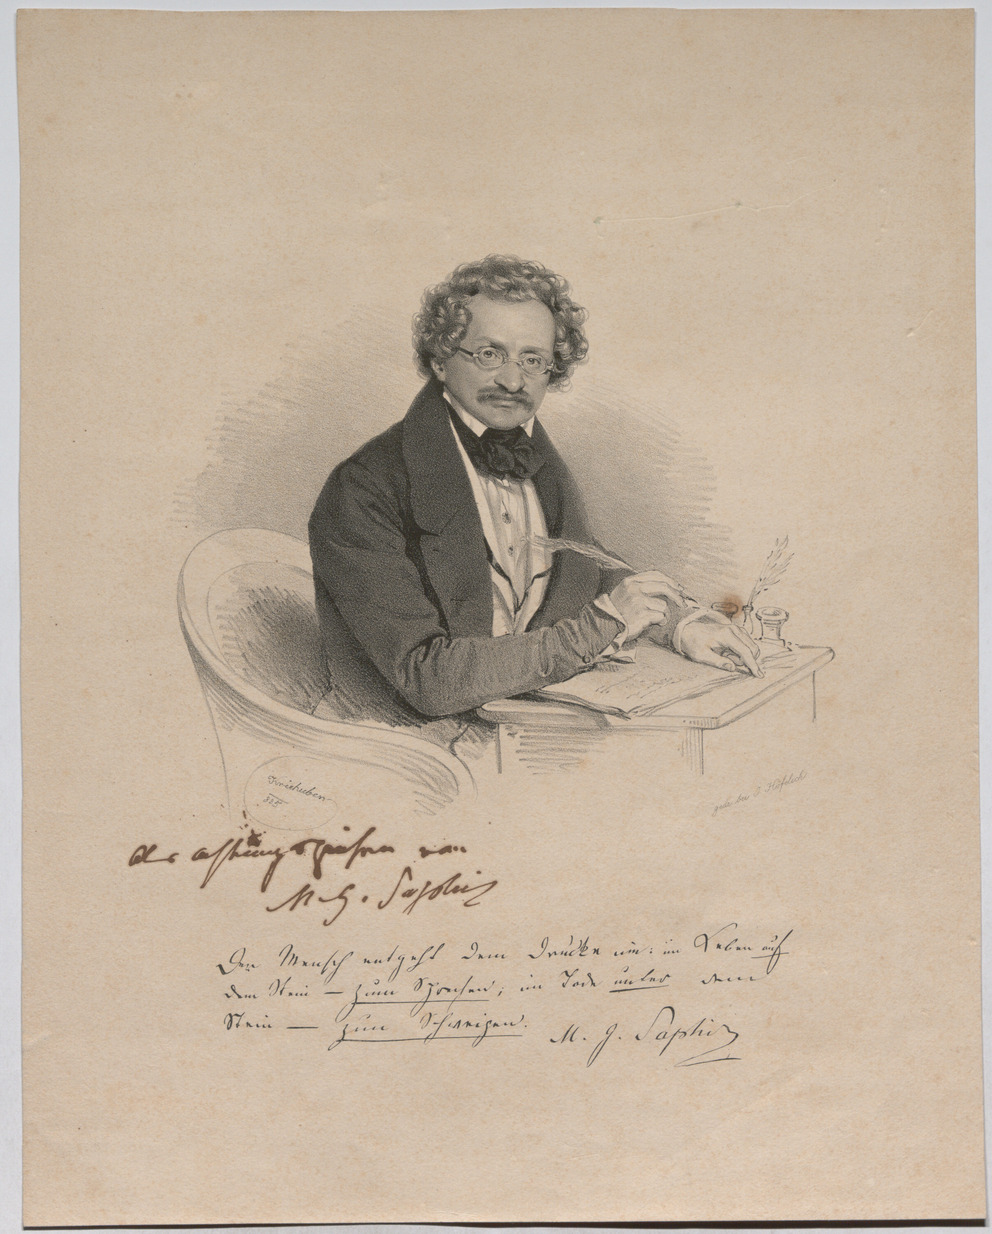 Kriehuber
835
gedr. bei J. Höfelich
als Achtungszeichen von
M. G. Saphir
Der Mensch entgeht dem Drucke nie: im Leben auf
dem Stein — zum Sprechen; im Tode unter dem
Stein — zum Schweigen.
M. G. Saphir